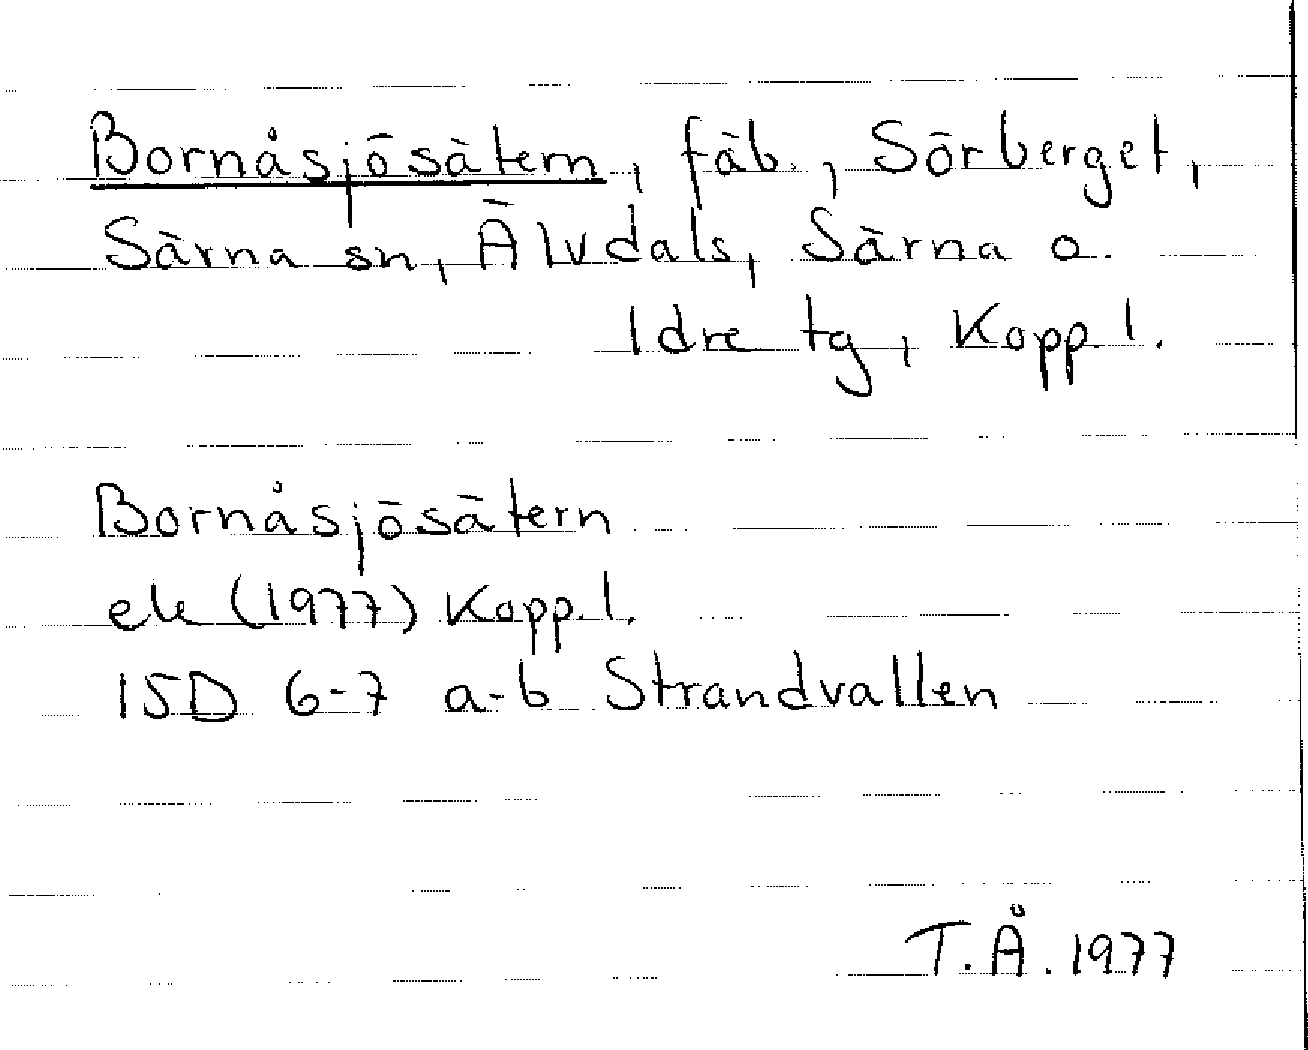 Bornåsjösätern, fäb., Sörberget,
Särna sn, Älvdals, Särna o.
Idre tg, Kopp.l.
Bornåsjösätern
ek (1977) Kopp.l.
15D 6-7 a-b Strandvallen
T.Å. 1977